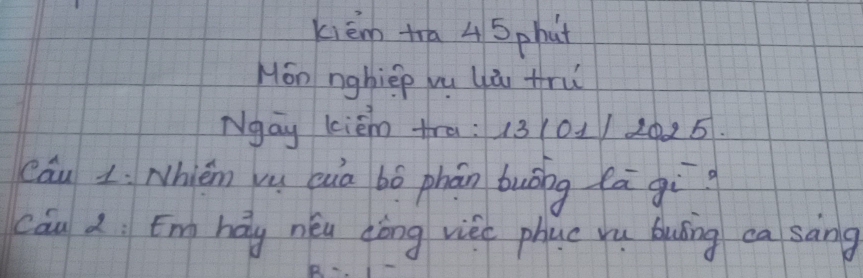 Kiểm tra 45 phút
Môn nghiệp vụ lưu trú
Ngày kiểm tra: 13/01/2025.
Câu 1: Nhiệm vụ của bộ phận buồng là gì?
Câu 2: Em hãy nêu công việc phục vụ buồng ca sáng